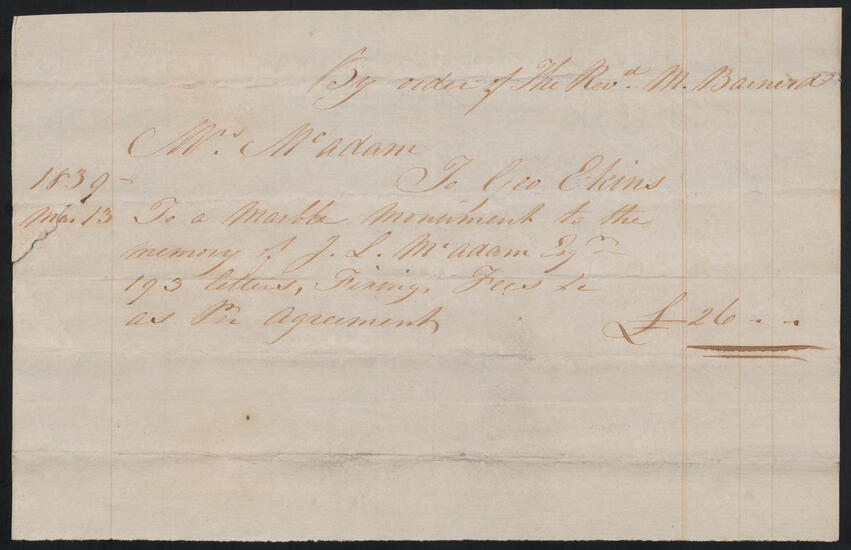 By order of The Revd. M. Barnerd
Mrs. Mcadam
1839 To Geo Ekins
Mar 13 To a Marble Monument to the
memory of J. L. Mcadam Esqr
193 letters, Fixing, Fees &c
as Per Agreement £ 26 - -